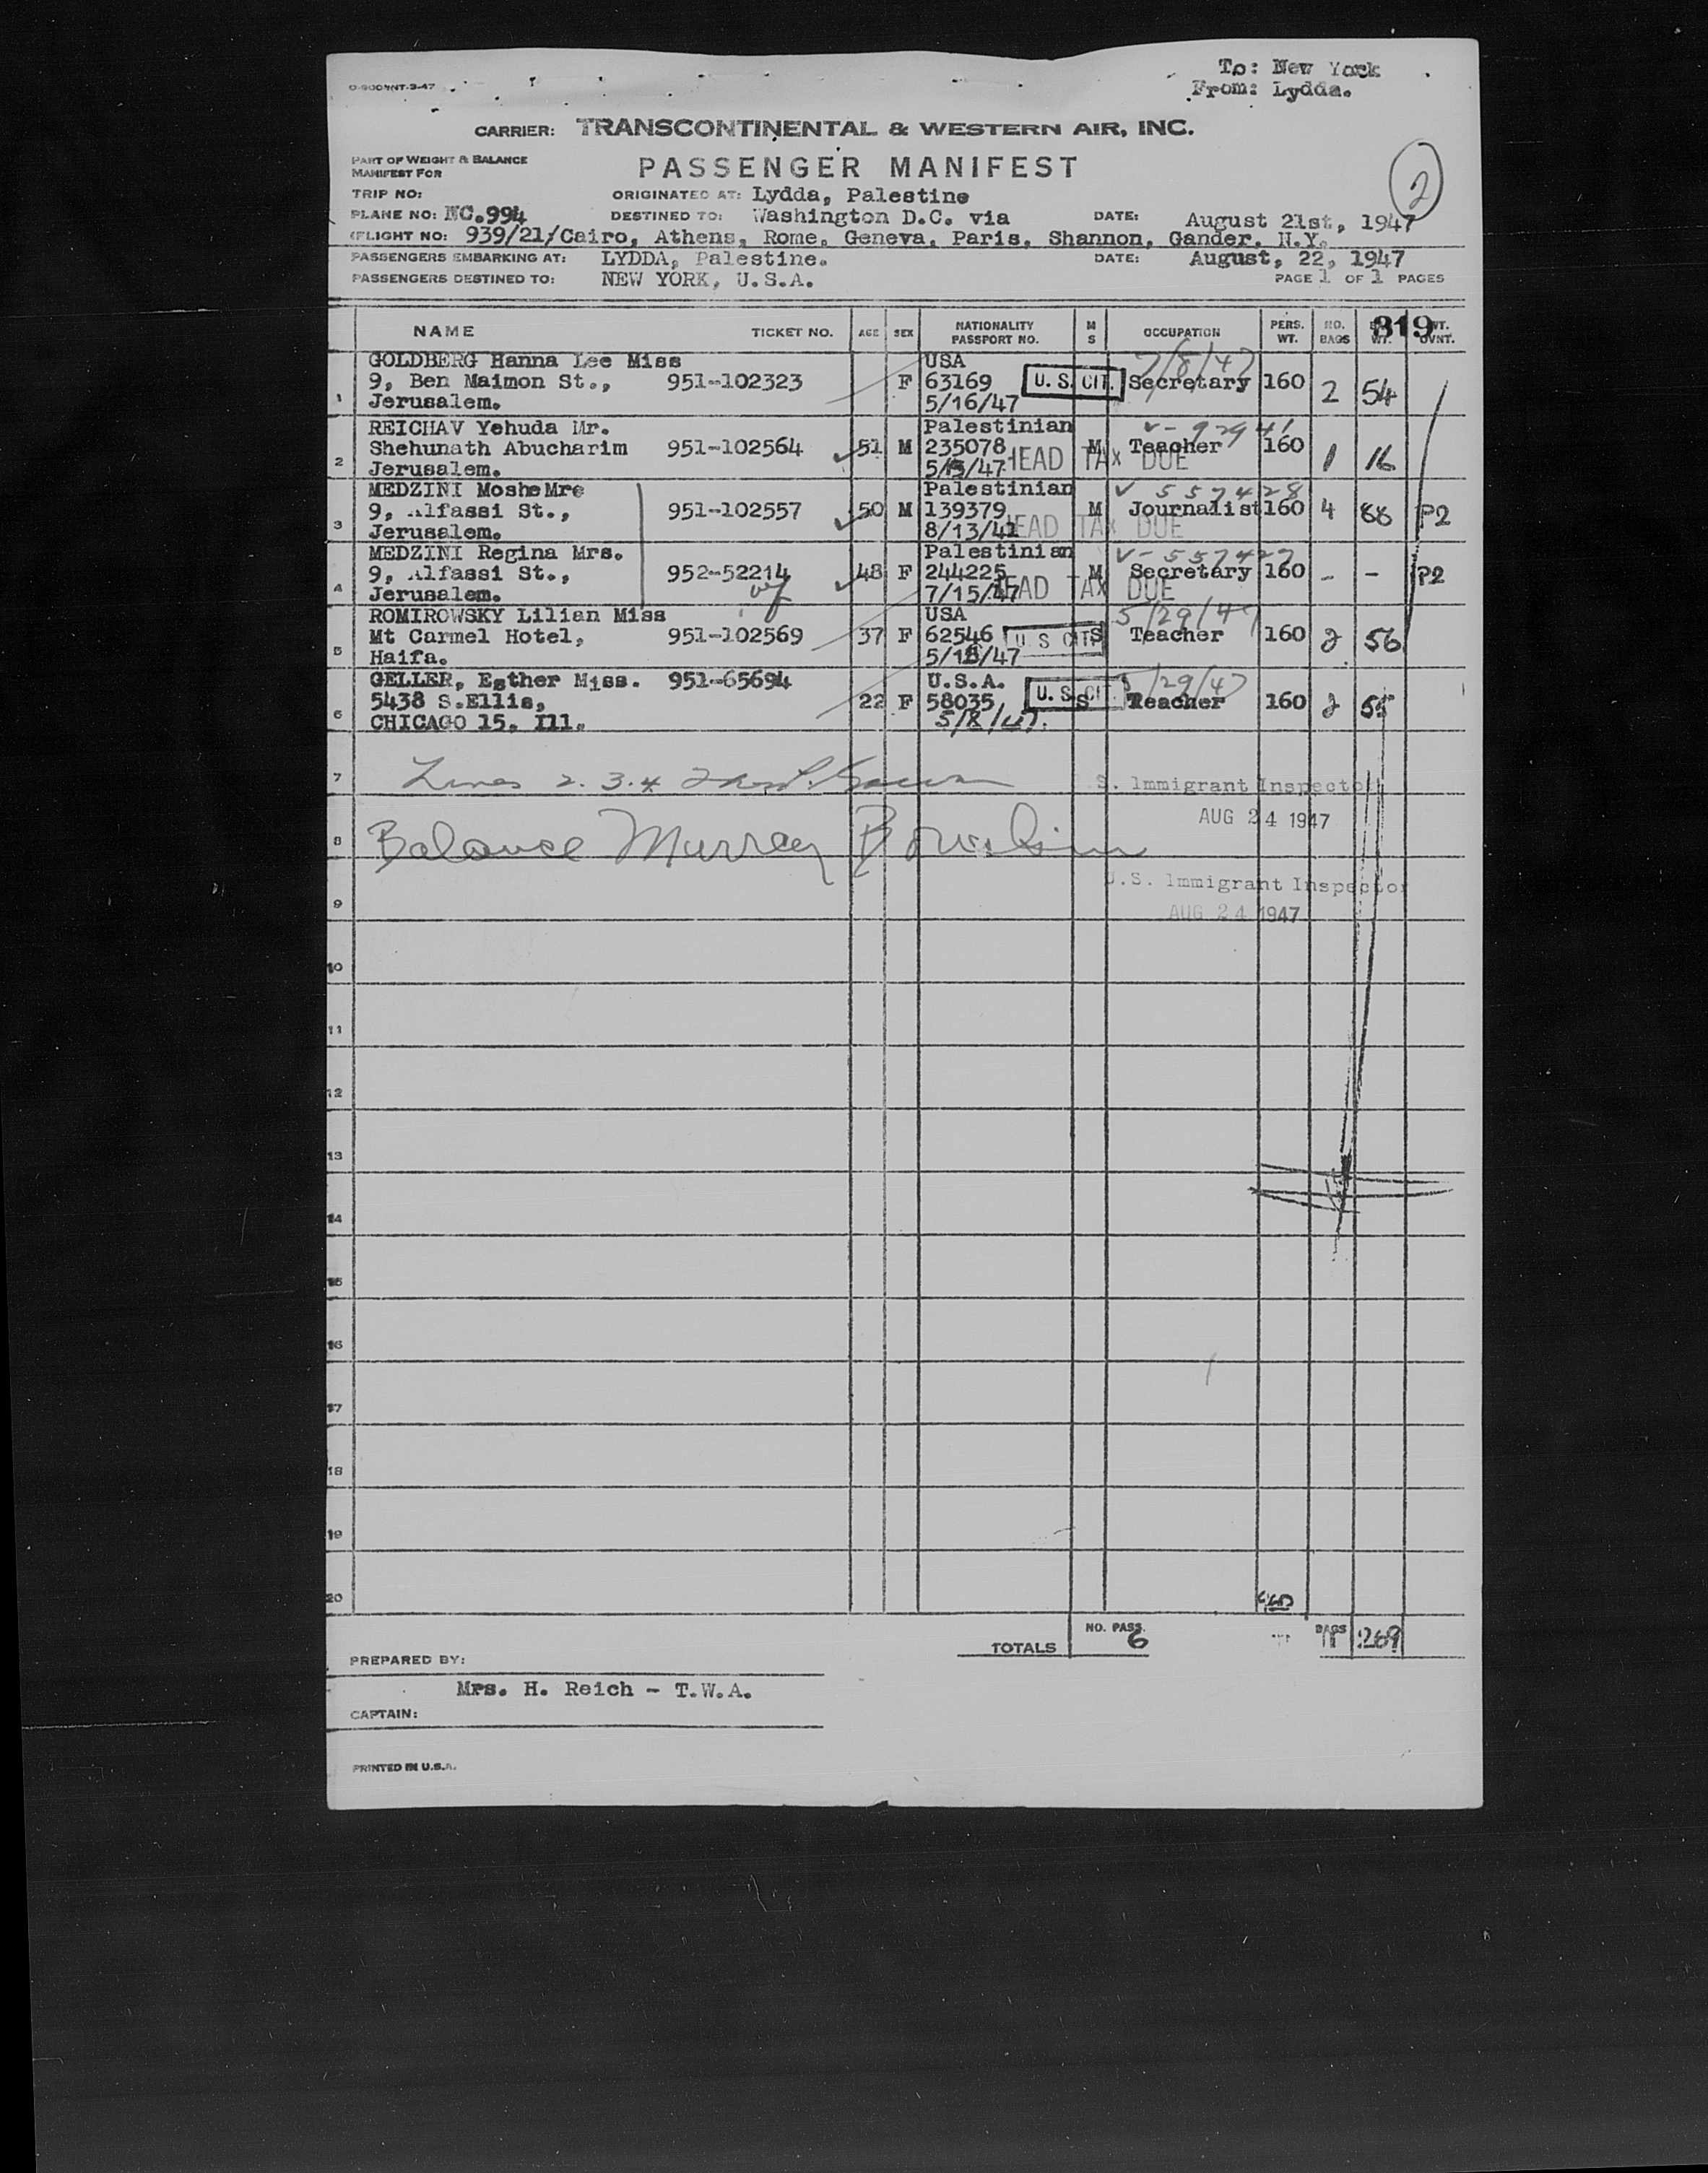 To: New York
From: Lydda.
CARRIER: TRANSCONTINENTAL & WESTERN AIR, INC.
PART OF WEIGHT & BALANCE
MANIFEST FOR
PASSENGER MANIFEST
2
TRIP NO:
ORIGINATED AT: Lydda, Palestine
PLANE NO: NC.994 DESTINED TO: Washington D.C. via DATE: August 21st, 1947
FLIGHT NO: 939/21/Cairo, Athens, Rome, Geneva, Paris, Shannon, Gander, N.Y.
PASSENGERS EMBARKING AT: LYDDA, Palestine. DATE: August, 22, 1947
PASSENGERS DESTINED TO: NEW YORK, U.S.A. PAGE 1 OF 1 PAGES
819
NAME TICKET NO. AGE SEX NATIONALITY PASSPORT NO. M S OCCUPATION PERS. WT. NO. BAGS
GOLDBERG Hanna Lee Miss USA 7/8/47
9, Ben Maimon St., 951-102323 F 63169 U.S. CIT. Secretary 160 2 54
1 Jerusalem. 5/16/47
REICHAV Yehuda Mr. Palestinian
Shehunath Abucharim 951-102564 51 M 235078 M Teacher 160 1 16
2 Jerusalem. HEAD TAX DUE
MEDZINI Moshe Mre Palestinian V 557428
9, Alfassi St., 951-102557 50 M 139379 M Journalist 160 4 88 P2
3 Jerusalem. HEAD TAX DUE
MEDZINI Regina Mrs. Palestinian V-557427
9, Alfassi St., 952-52214 48 F 244225 M Secretary 160 - - P2
4 Jerusalem. 7/15/47 HEAD TAX DUE
ROMIROWSKY Lilian Miss USA 5/29/47
Mt Carmel Hotel, 951-102569 37 F 62546 U S CIT. S Teacher 160 2 56
5 Haifa.
GELLER, Esther Miss. 951-65694 U.S.A. 5/29/47
5438 S.Ellis, 22 F 58035 U.S. CIT. S Teacher 160 2 55
6 CHICAGO 15. Ill. 5/8/47.
7 Lines 2. 3. 4
S. Immigrant Inspector
AUG 24 1947
8 Balance Murray
U.S. Immigrant Inspector
9 AUG 24 1947
10
11
12
13
14
15
16
17
18
19
20
TOTALS NO. PASS. 6 BAGS 11 269
PREPARED BY:
Mrs. H. Reich - T.W.A.
CAPTAIN:
PRINTED IN U.S.A.